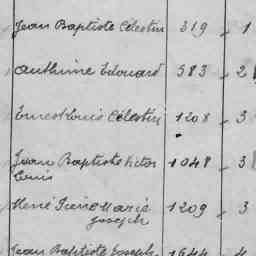 Jean Baptiste Célestin 319 1
Anthime Edouard 583 2
Ernest Louis Célestin 1208 3
Jean Baptiste Victor 1048 3
Louis
René Marie 1209 3
Joseph
Jean Baptiste Joseph 1644 4